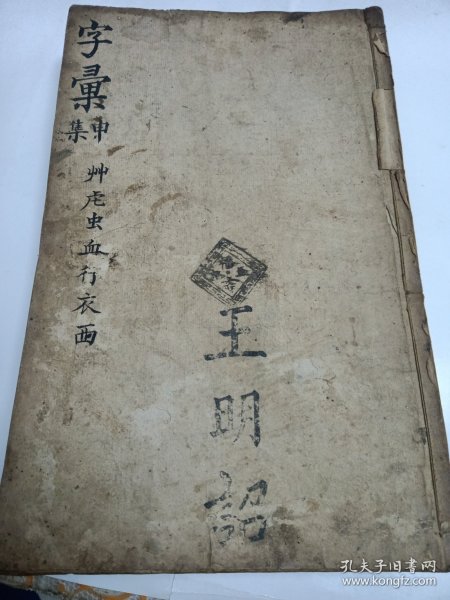 字彙
申集
艸虍虫血行衣襾
王明詔
孔夫子旧书网
www.kongfz.com